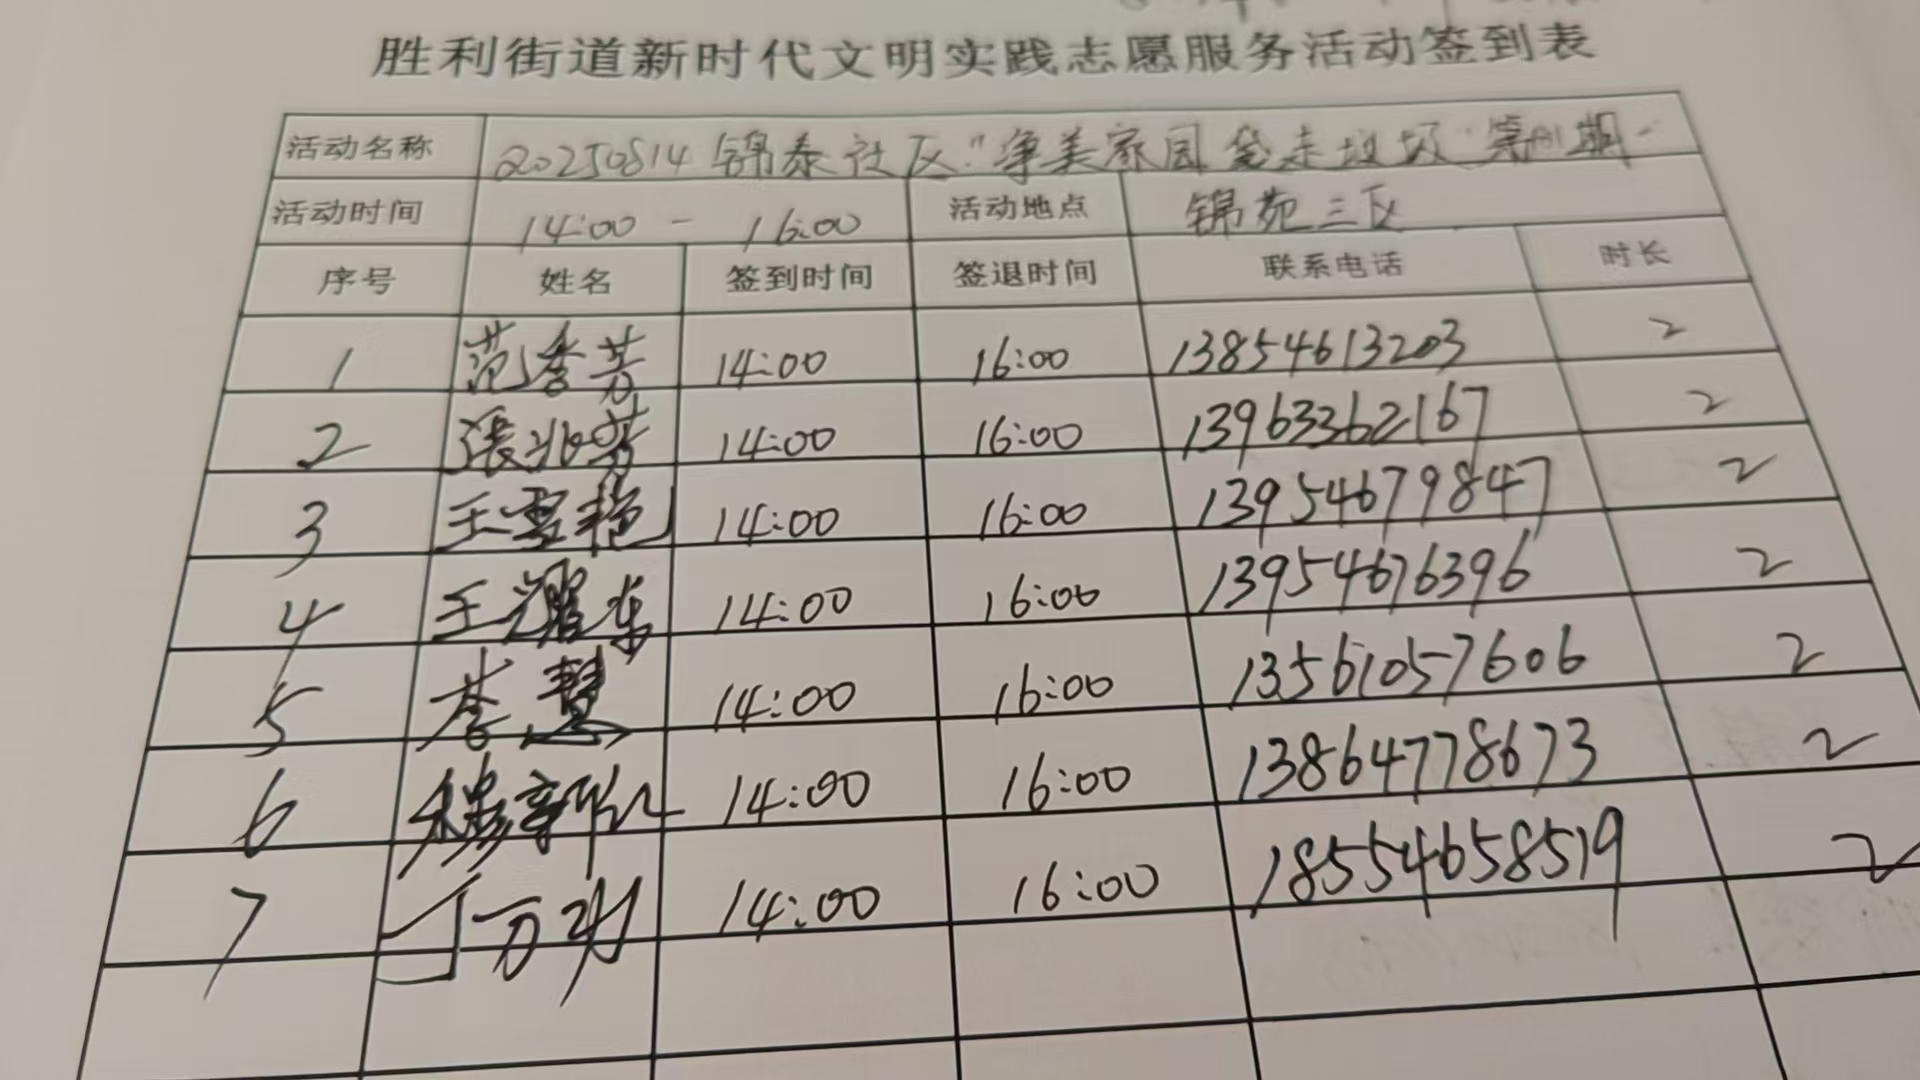 胜利街道新时代文明实践志愿服务活动签到表
活动名称 20250814锦泰社区"净美家园 袋走垃圾"第 期
活动时间 14:00 - 16:00 活动地点 锦苑三区
序号 姓名 签到时间 签退时间 联系电话 时长
1 范秀芳 14:00 16:00 13854613203 2
2 張兆芳 14:00 16:00 13963362167 2
3 王雪艳 14:00 16:00 13954679847 2
4 王耀东 14:00 16:00 13954676396 2
5 李慧 14:00 16:00 13561057606 2
6 14:00 16:00 13864778673 2
7 丁万水 14:00 16:00 18554658519 2